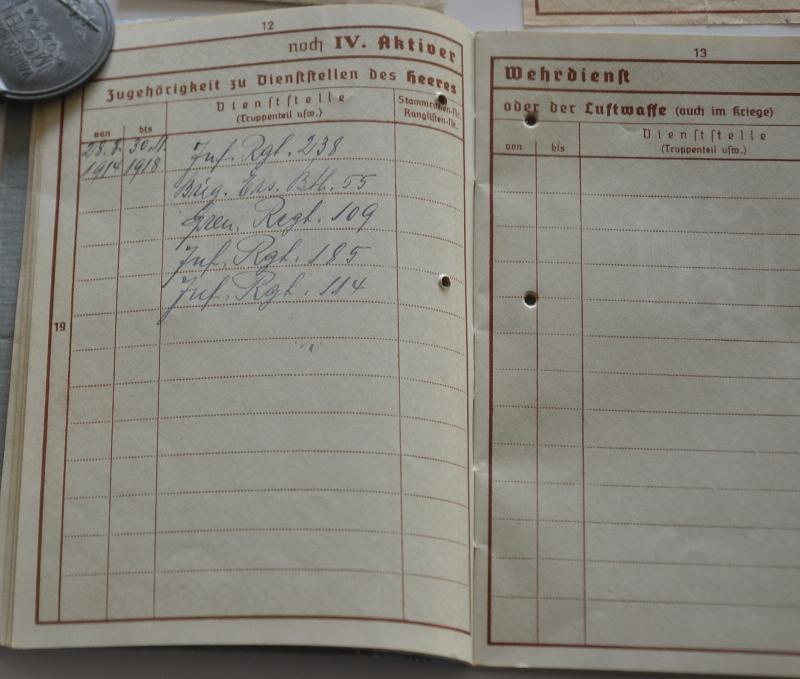 12
noch IV. Aktiver
Zugehörigkeit zu Dienststellen des Heeres
von
bis
Dienststelle
(Truppenteil usw.)
Stammrollen-Nr.
Ranglisten-Nr.
28.8. 30.11.
1914 1918
Inf. Rgt. 238
Brig. Ers. Btl. 55
Gren. Regt. 109
Inf. Rgt. 185
Inf. Rgt. 114
19
13
Wehrdienst
oder der Luftwaffe (auch im Kriege)
von
bis
Dienststelle
(Truppenteil usw.)